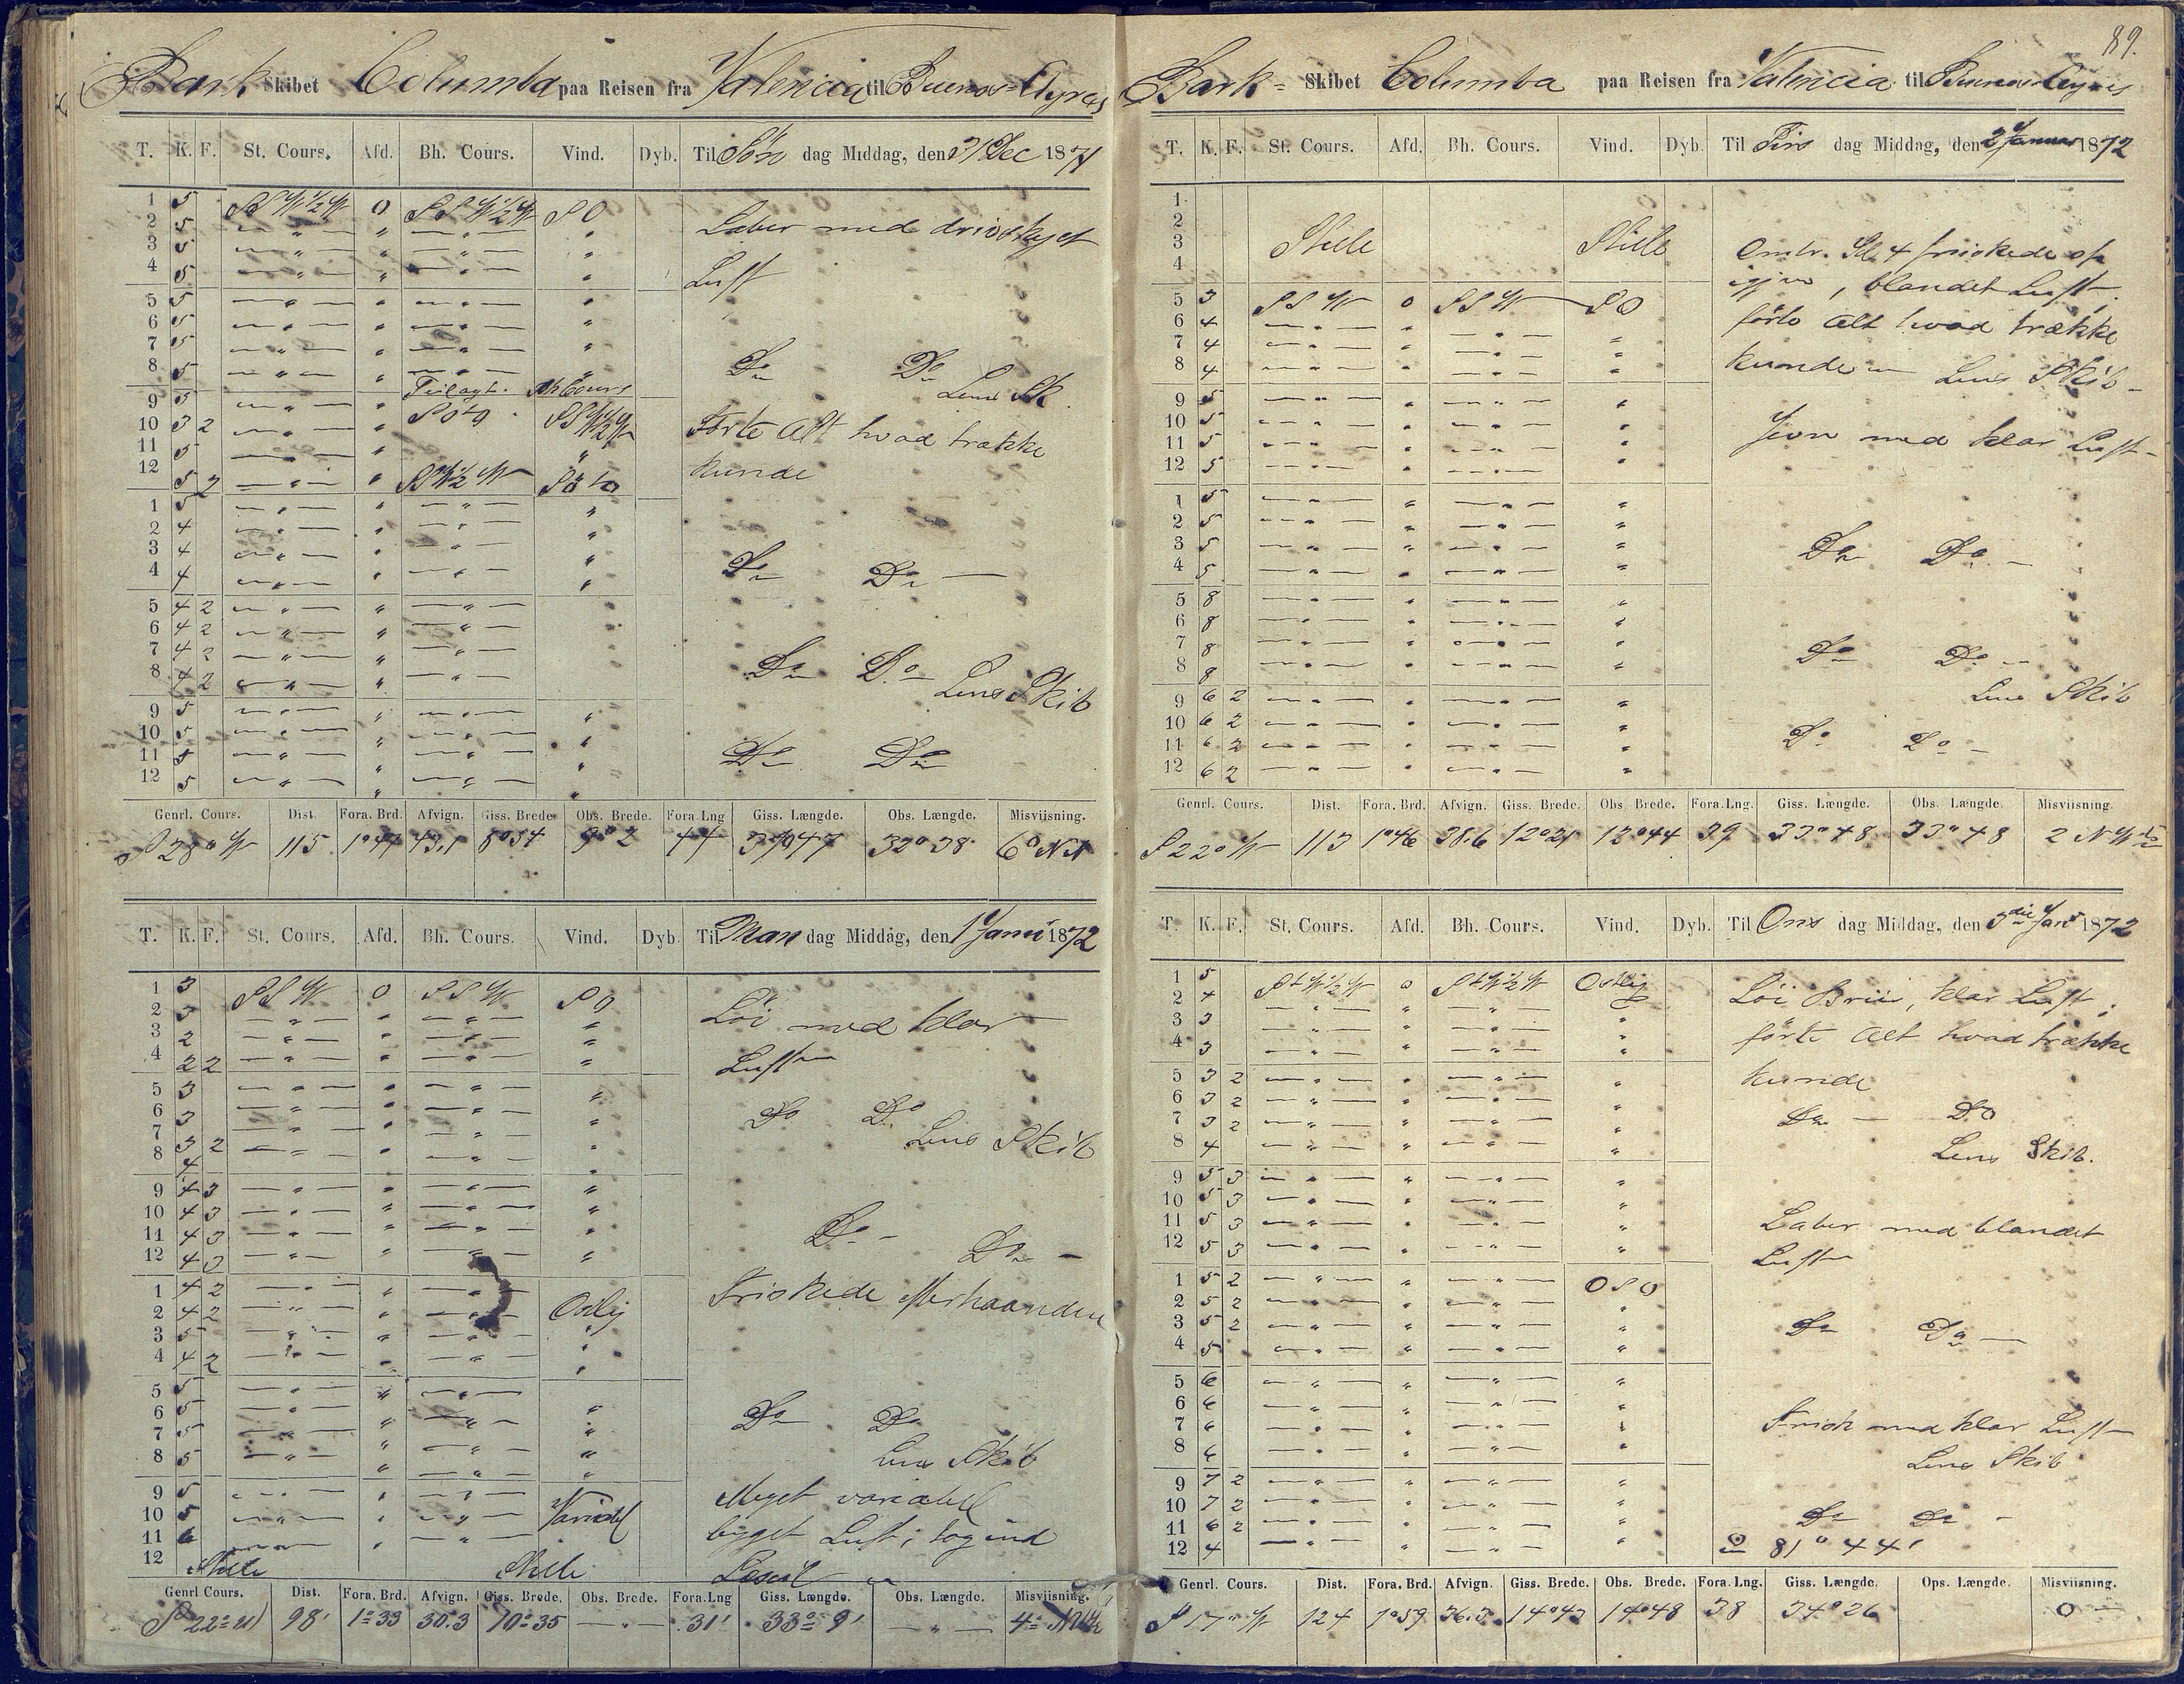 Bark Skibet Columba paa Reisen fra Valencia til Buenos-Ayres
T. K. F. St. Cours. Afd. Bh. Cours. Vind. Dyb. Til Søn dag Middag, den 31 Dec 1871
1 5 SSW½W 0 SSW½W SO
2 5 — " — " — " — "
3 5 — " — " — " — "
4 5 — " — " — " — "
Laber med drivskyet
Luft
5 5 — " — " — " — "
6 5 — " — " — " — "
7 5 — " — " — " — "
8 5 — " — " — " — "
Do Do
Lens Sk.
9 5 — " — "
10 3 2 — " — "
11 5 — " — "
12 5 2 — " — " SSW½W
Førte Alt hvad trække
kunde
1 5 — " — " — " — "
2 4 — " — " — " — "
3 4 — " — " — " — "
4 4 — " — " — " — "
Do Do —
5 4 2 — " — " — " — "
6 4 2 — " — " — " — "
7 4 2 — " — " — " — "
8 4 2 — " — " — " — "
Do Do —
Lens Skib
9 5 — " — " — " — "
10 5 — " — " — " — "
11 5 — " — " — " — "
12 5 — " — " — " — "
Do Do
Genrl. Cours. Dist. Fora. Brd. Afvign. Giss. Brede. Obs. Brede. Fora. Lng Giss. Længde. Obs. Længde. Misviisning.
S 28° W 115 43,1 8°54 9°2 44 32°38
T. K. F. St. Cours. Afd. Bh. Cours. Vind. Dyb. Til Man dag Middag, den 1 Janu 1872
1 3 SSW 0 SSW SO
2 3 — " — " — " — "
3 2 — " — " — " — "
4 2 2 — " — " — " — "
Löi med klar
Luft
5 3 — " — " — " — "
6 3 — " — " — " — "
7 3 2 — " — " — " — "
8 4 — " — " — " — "
Do Do
Lens Skib
9 4 3 — " — " — " — "
10 4 3 — " — " — " — "
11 4 3 — " — " — " — "
12 4 3 — " — " — " — "
Do — Do —
1 4 2 — " — " — "
2 4 2 — " — " — " Ostlig
3 5 — " — " — " — "
4 4 2 — " — " — " — "
Friskede efterhaanden
5 5 — " — " — " — "
6 5 — " — " — " — "
7 5 — " — " — " — "
8 5 — " — " — " — "
Do Do
Lens Skib
9 5 — " — " — "
10 5 — " — " — " Variabel
11 6 — " — " — "
12 Stille Stille
Meget variabel
byget Luft; tog ind
Genrl Cours. Dist. Fora. Brd. Afvign. Giss. Brede. Obs. Brede. Fora. Lng Giss. Længde. Obs. Længde. Misviisning.
S 22° W 98' 1°33 30.3 10°35 — " — 31' 33° 9' — " —
89.
Bark- Skibet Columba paa Reisen fra Valencia til Buenos-Ayres
T. K. F. St. Cours. Afd. Bh. Cours. Vind. Dyb. Til Tirs dag Middag, den 2 Januar 1872
1
2
3 Stille Stille
4
Omtr. Kl. 4 friskede op
igjen, blandet Luft.
5 3 SSW 0 SSW SO
6 4 — " — " — " — "
7 4 — " — " — " — "
8 4 — " — " — " — "
førte Alt hvad trække
kunde — Lens Skib —
9 5 — " — " — " — "
10 5 — " — " — " — "
11 5 — " — " — " — "
12 5 — " — " — " — "
Jevn med klar Luft —
1 5 — " — " — " — "
2 5 — " — " — " — "
3 5 — " — " — " — "
4 5 — " — " — " — "
Do Do —
5 8 — " — " — " — "
6 8 — " — " — " — "
7 8 — " — " — " — "
8 8 — " — " — " — "
Do Do —
Lens Skib
9 6 2 — " — " — " — "
10 6 2 — " — " — " — "
11 6 2 — " — " — " — "
12 6 2 — " — " — " — "
Do Do —
Genrl. Cours. Dist. Fora. Brd. Afvign. Giss. Brede. Obs. Brede. Fora. Lng. Giss. Længde. Obs. Længde. Misviisning.
S 22° W 113 1°46 38.6 12°21 12°44 39 33°48 33°48
T. K. F. St. Cours. Afd. Bh. Cours. Vind. Dyb. Til Ons dag Middag, den 3die Janr 1872
1 5 StW½W 0 StW½W Ostlig
2 4 — " — " — " — "
3 3 — " — " — " — "
4 3 — " — " — " — "
Löi Briis, klar Luft;
förte Alt hvad trække
kunde
5 3 2 — " — " — " — "
6 3 2 — " — " — " — "
7 3 2 — " — " — " — "
8 4 — " — " — " — "
Do — Do
Lens Skib.
9 5 3 — " — " — " — "
10 5 3 — " — " — " — "
11 5 3 — " — " — " — "
12 5 3 — " — " — " — "
Laber med blandet
Luft
1 5 2 — " — " — " OSO
2 5 2 — " — " — " — "
3 5 2 — " — " — " — "
4 5 — " — " — " — "
Do Do —
5 6 — " — " — " — "
6 6 — " — " — " — "
7 6 — " — " — " — "
8 6 — " — " — " — "
Frisk med klar Luft
Lens Skib
9 7 2 — " — " — " — "
10 7 2 — " — " — " — "
11 6 2 — " — " — " — "
12 4 — " — " — " — "
Do Do —
81° 44'
Genrl. Cours. Dist. Fora. Brd. Afvign. Giss. Brede. Obs. Brede. Fora. Lng. Giss. Længde. Ops. Længde. Misviisning.
S 17° W 124 1°59 36.3 14°43 14°48 38 34°26 0 —